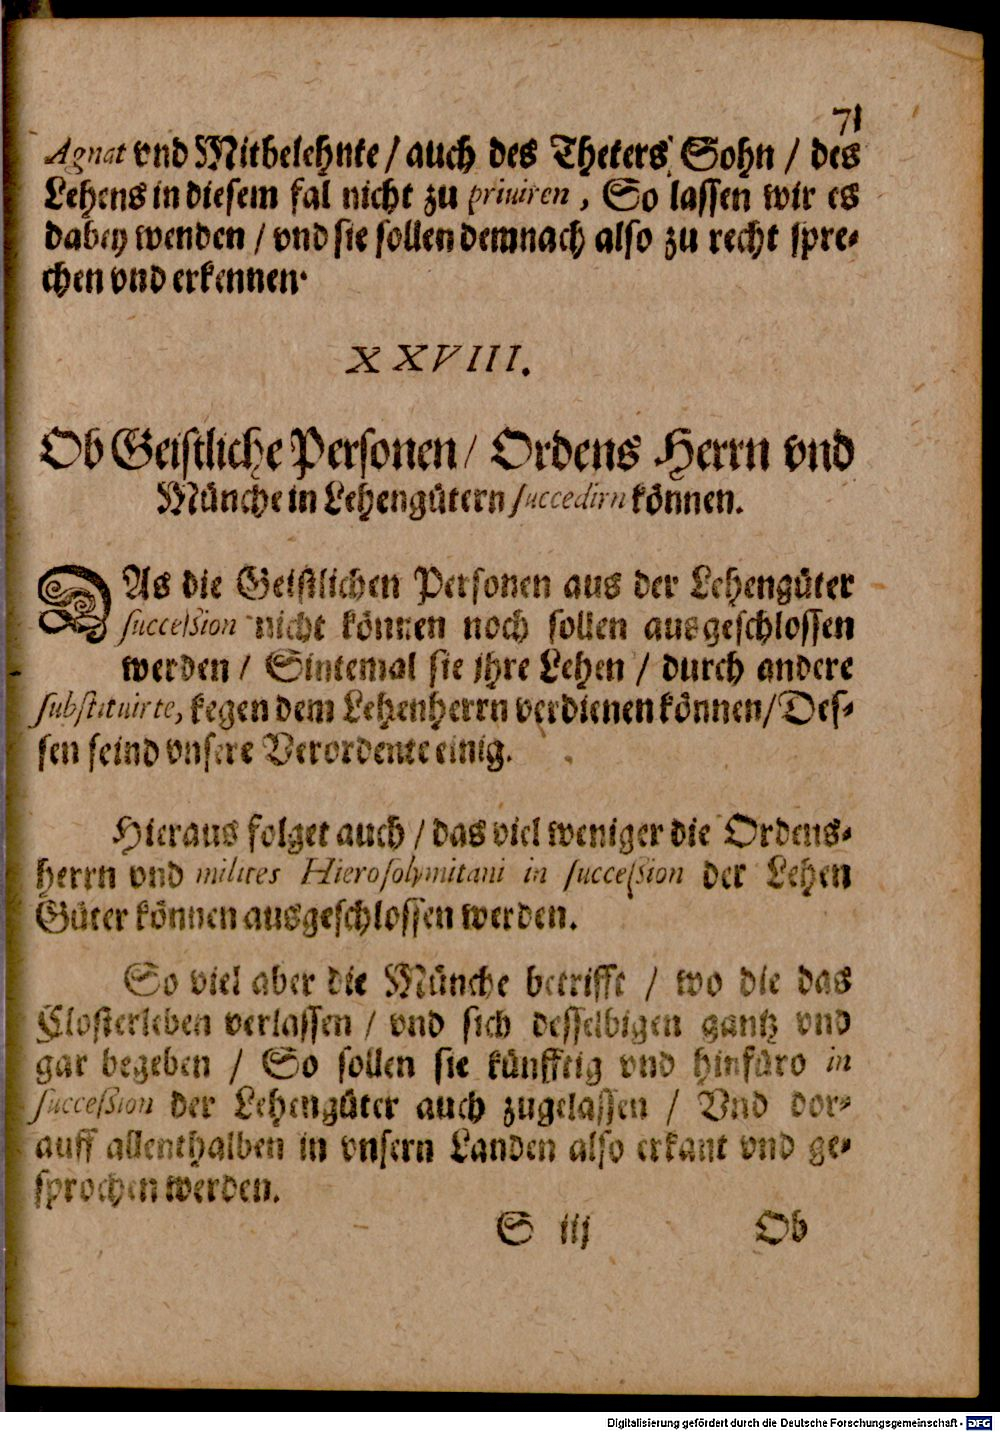 71
Agnat vnd Mitbelehnte / auch des Theters Sohn / des
Lehens in diesem fal nicht zu priuiren, So lassen wir es
dabey wenden / vnd sie sollen demnach also zu recht spre-
chen vnd erkennen.
XXVIII.
Ob Geistliche Personen / Ordens Herrn vnd
Münche in Lehengütern succedirn können.
DAs die Geistlichen Personen aus der Lehengüter
succeßion nicht können noch sollen ausgeschlossen
werden / Sintemal sie jhre Lehen / durch andere
substituirte, kegen dem Lehenherrn verdienen können / Des-
sen seind vnsere Verordente einig.
Hieraus folget auch / das viel weniger die Ordens-
herrn vnd milites Hierosolymitani in succeßion der Lehen
Güter können ausgeschlossen werden.
So viel aber die Münche betrifft / wo die das
Closterleben verlassen / vnd sich desselbigen gantz vnd
gar begeben / So sollen sie künfftig vnd hinfüro in
succeßion der Lehengüter auch zugelassen / Vnd dor-
auff allenthalben in vnsern Landen also erkant vnd ge-
sprochen werden.
S iij Ob
Digitalisierung gefördert durch die Deutsche Forschungsgemeinschaft - DFG